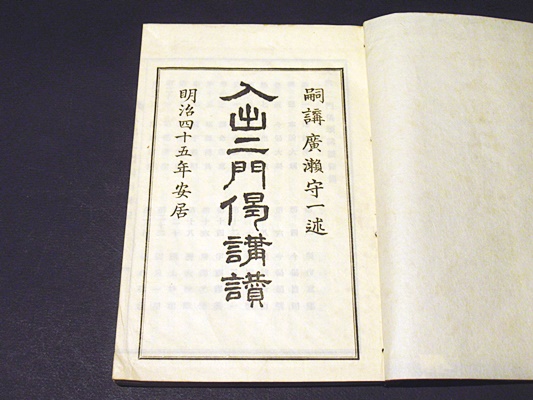 嗣講廣瀨守一述
入出二門偈講讃
明治四十五年安居